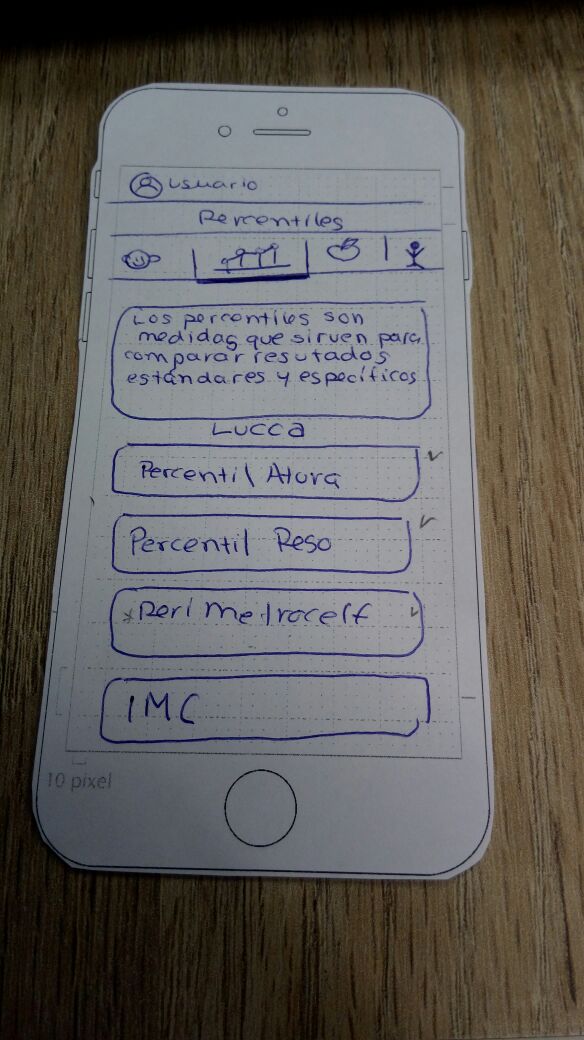 usuario
Percentiles
Los percentiles son
medidas que sirven para
comparar resutados
estándares y específicos
Lucca
Percentil Atura
Percentil Peso
Perimetrocelf
IMC
10 pixel